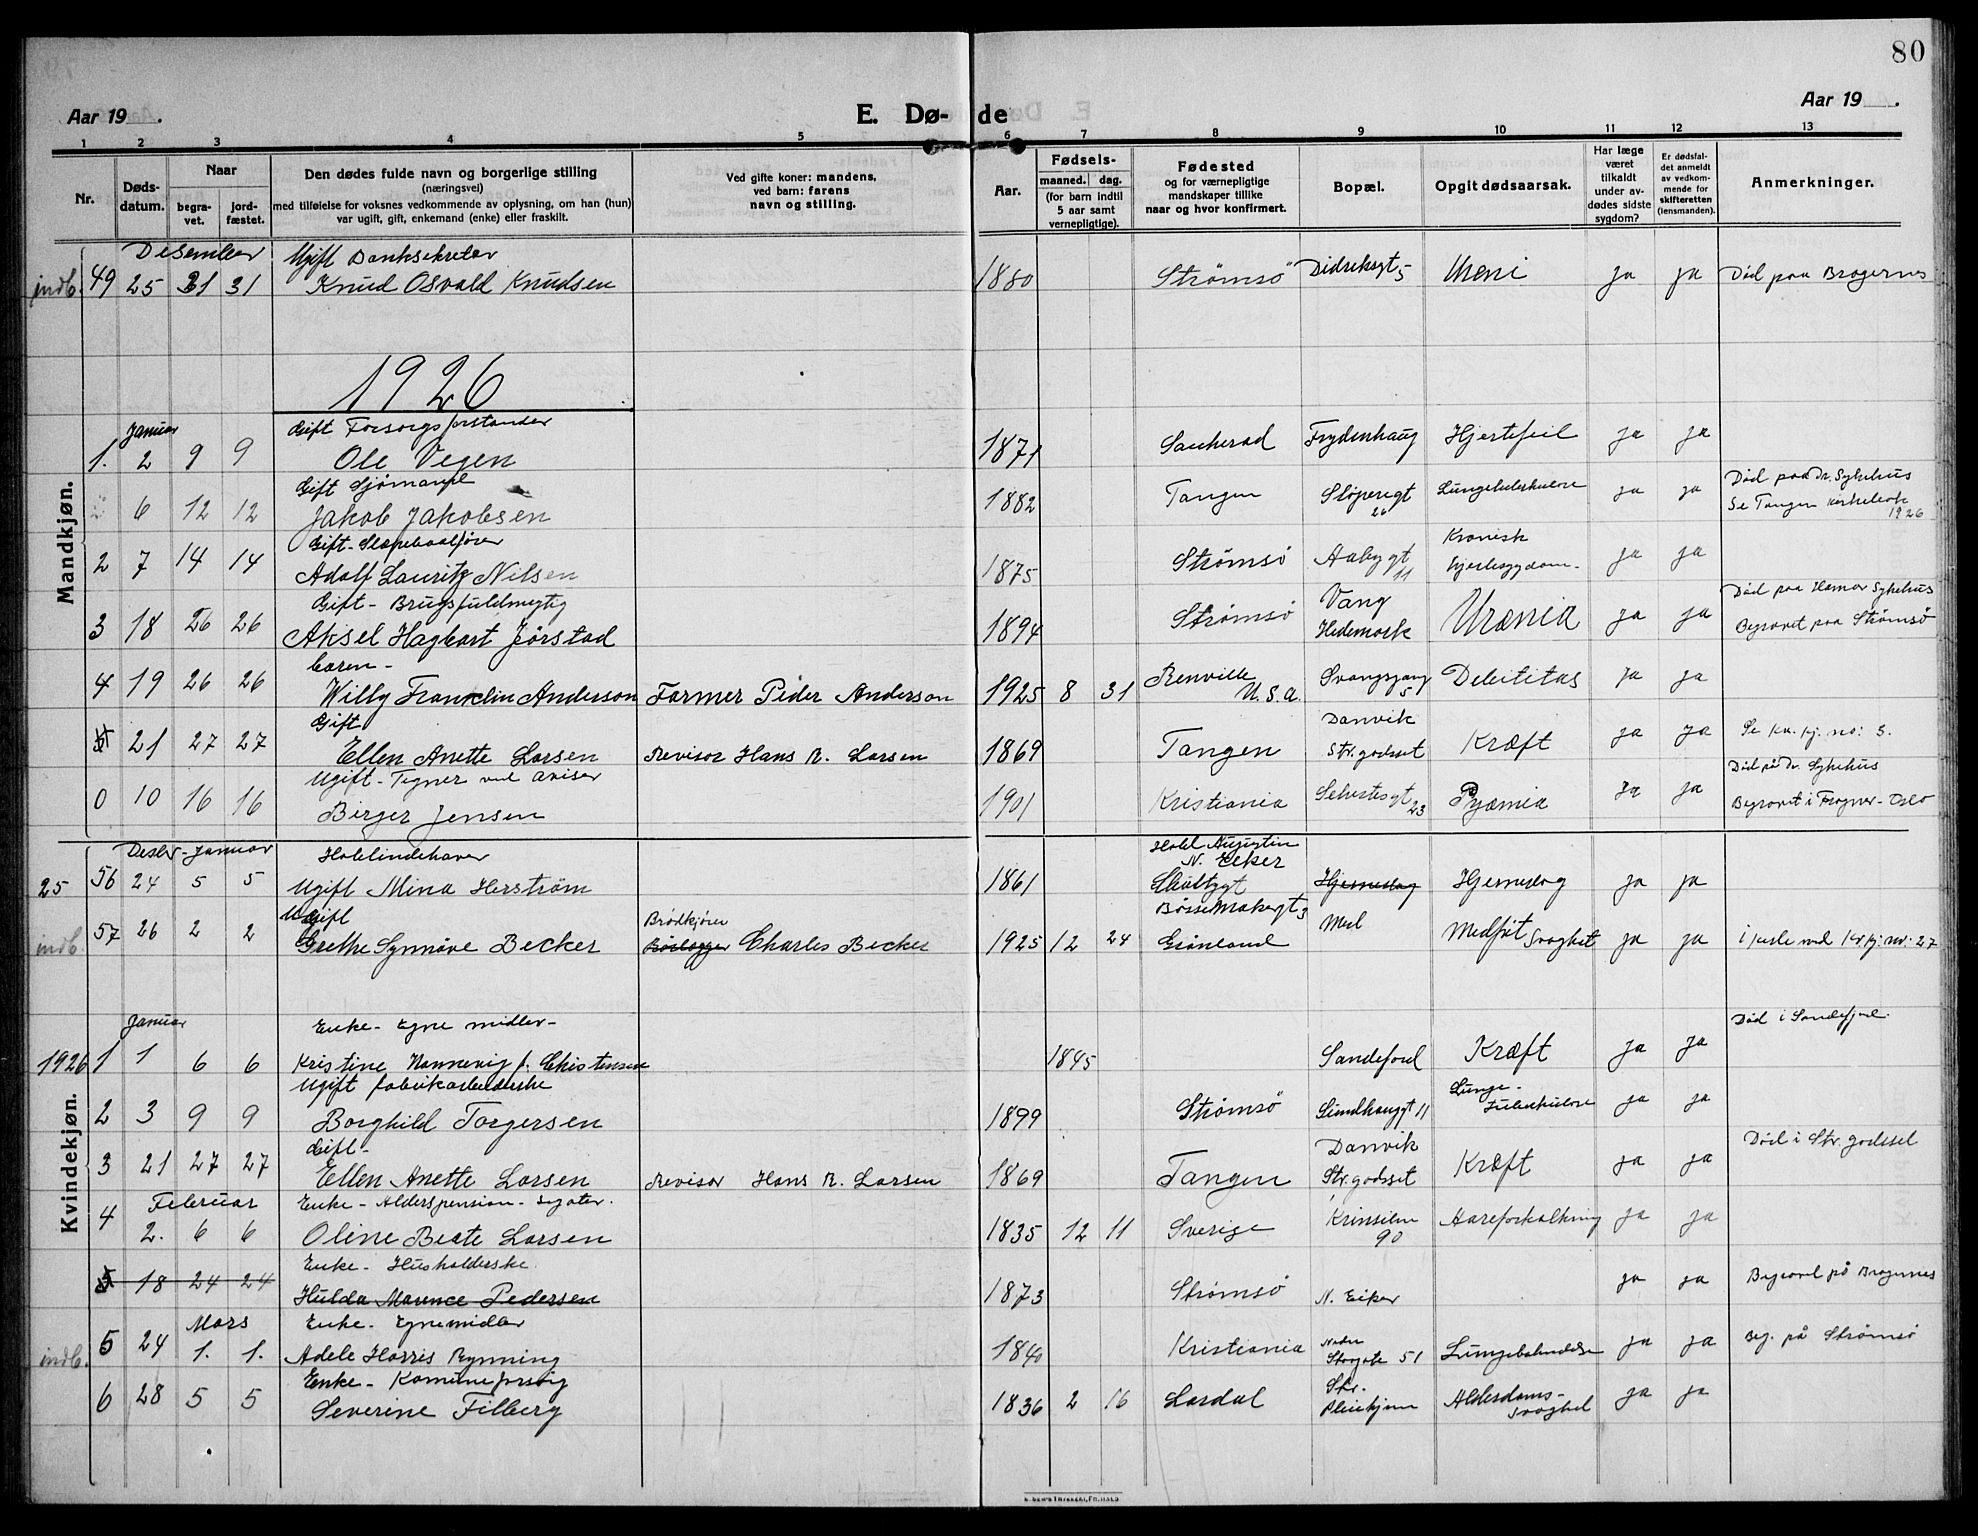 80
Aar 19 .
E. Dø- de
Aar 19 .
1 2 3 4 5 6 7 8 9 10 11 12 13
Nr.
Døds-
datum.
Naar
begra-
vet.
jord-
fæstet.
Den dødes fulde navn og borgerlige stilling
(næringsvei)
med tilføielse for voksnes vedkommende av oplysning, om han (hun)
var ugift, gift, enkemand (enke) eller fraskilt.
Ved gifte koner: mandens,
ved barn: farens
navn og stilling.
Aar.
Fødsels-
maaned. dag.
(for barn indtil
5 aar samt
vernepligtige).
Fødested
og for værnepligtige
mandskaper tillike
naar og hvor konfirmert.
Bopæl.
Opgit dødsaarsak.
Har læge
været
tilkaldt
under av-
dødes sidste
sygdom?
Er dødsfal-
det anmeldt
av vedkom-
mende for
skifteretten
(lensmanden).
Anmerkninger.
Desember Ugift Banksekretær
indb. 49 25 31 31 Knud Osvald Knudsen 1880 Strømsö Didriksgt 5 Uremi ja ja Död paa Bragernes
1926
Mandkjøn.
Januar Gift Forsorgsforstander
1. 2 9 9 Ole Vegen 1871 Sauherad Frydenhaug Hjertefeil ja ja
Gift Sjömand Död paa Dr. Sykehus
6 12 12 Jakob Jakobsen 1882 Tangen Sloperigt 26 Lungetuberkulose ja ja Se Tangen kirkebok 1926
Gift - Slæpebaatfører Kronisk
2 7 14 14 Adolf Lauritz Nilsen 1875 Strømsö Aabygt 11 hjertesygdom - ja ja
Gift - Brugsfuldmegtig Vang Död paa Hamar Sykehus
3 18 26 26 Aksel Hagbart Jörstad 1894 Strømsö Hedemark Urænia ja ja Begravet paa Strømsö
barn -
4 19 26 26 Willy Franklin Anderson Farmer Peder Anderson 1925 8 31 Renville U.S.A. Svangsgang 5 Debititas ja ja
Gift Danvik
5 21 27 27 Ellen Anette Larsen Revisor Hans R. Larsen 1869 Tangen Str. godset Kræft ja ja Se kv. kj. no: 3.
Ugift - Tegner ved aviser Död på Dr. Sykehus
0 10 16 16 Birger Jensen 1901 Kristiania Schultesgt 23 Pyæmia ja ja Begravet i Frogner - Oslo
Desbr - Januar Hotelindehaver Hotel Augustin
N. Eiker
25 56 24 5 5 Ugift Mina Herström 1861 Skultzgt Hjerneslag Hjerneslag ja ja
Ugift Brödkjörer Bössemakergt 3
indb. 57 26 2 2 Grethe Synnöve Becker Charles Becker 1925 12 24 Grönland Med Medföt Svaghet ja ja i kiste med Kv. kj. nr: 27
Kvindekjøn.
Januar Enke - Egne midler - Död i Sandefjord
1926 1 1 6 6 Kristine Nannevig f. Christensen 1845 Sandefjord Kræft ja ja
Ugift fabrikarbeiderske Lunge-
2 3 9 9 Borghild Torgersen 1899 Strømsö Sundhauggt 11 tuberkulose ja ja
Gift - Danvik Död i Str. godset
3 21 27 27 Ellen Anette Larsen Revisor Hans R. Larsen 1869 Tangen Str. godset Kræft ja ja
Februar Enke - Alderspension -
4 2. 6 6 Oline Beate Larsen 1835 12 11 Sverige 90 Aareforkalkning ja ja
Enke - Husholderske
5 18 24 24 Hulda Marence Pedersen 1873 Strømsö N. Eiker ja ja Begravet på Bragernes
Mars Enke - Egne midler
indb. 5 24 1. 1. Adele Harris Rynning 1840 Kristiania Nedre Storgate 51 Lungebetændelse ja ja Beg. på Strømsö
Enke - Komuneforsörg Str.
6 28 5 5 Severine Filberg 1836 2 16 Lardal Alderdoms-svaghet ja ja